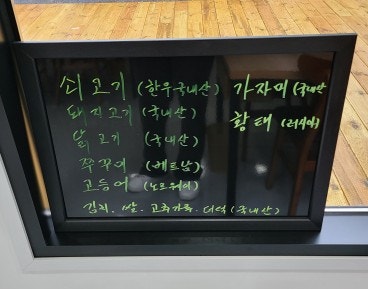 쇠고기 (한우국내산) 가자미 (국내산
돼지고기 (국내산) 황태 (러시아)
닭고기 (국내산)
쭈꾸미 (베트남)
고등어 (노르웨이)
김치. 쌀. 고추가루. 더덕 (국내산)